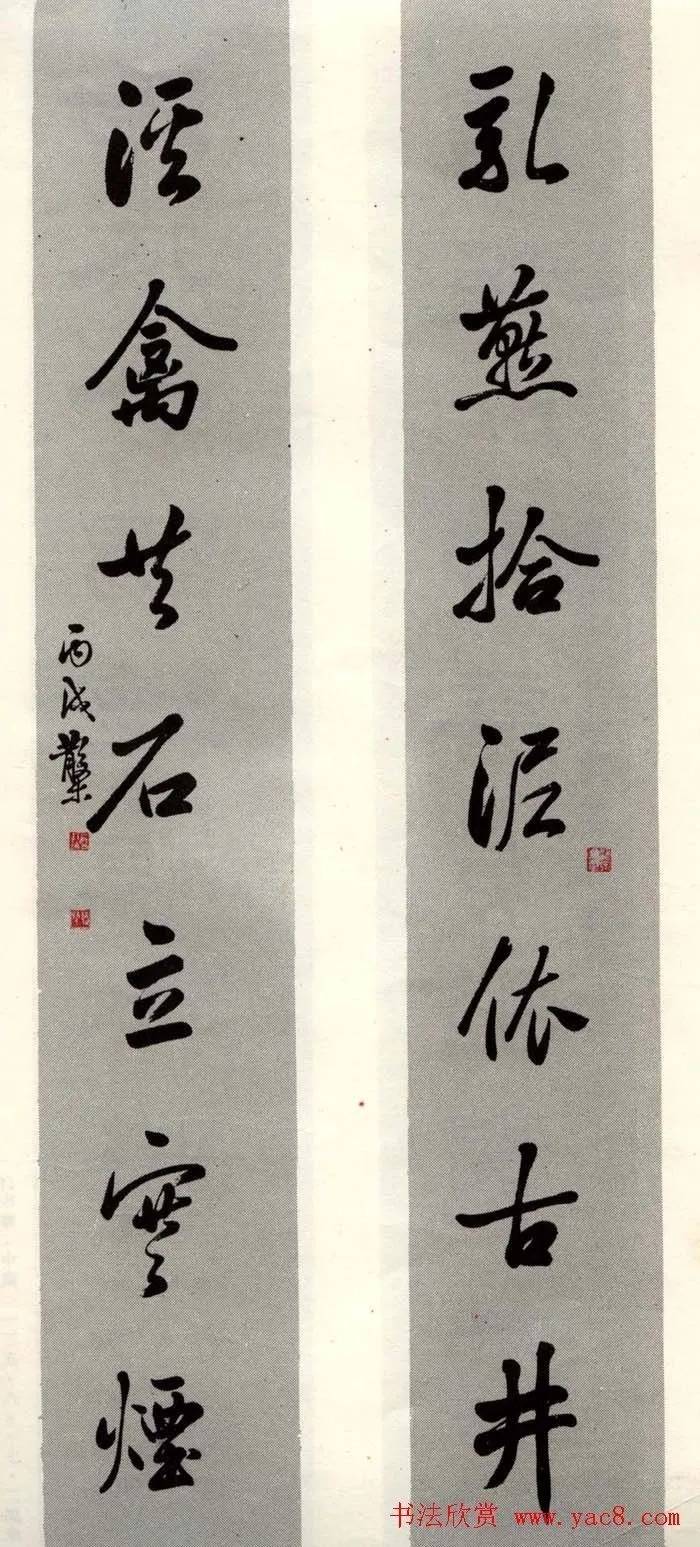 乳燕拾泥依古井
溪禽共石立寒煙
丙戌
书法欣赏 www.yac8.com